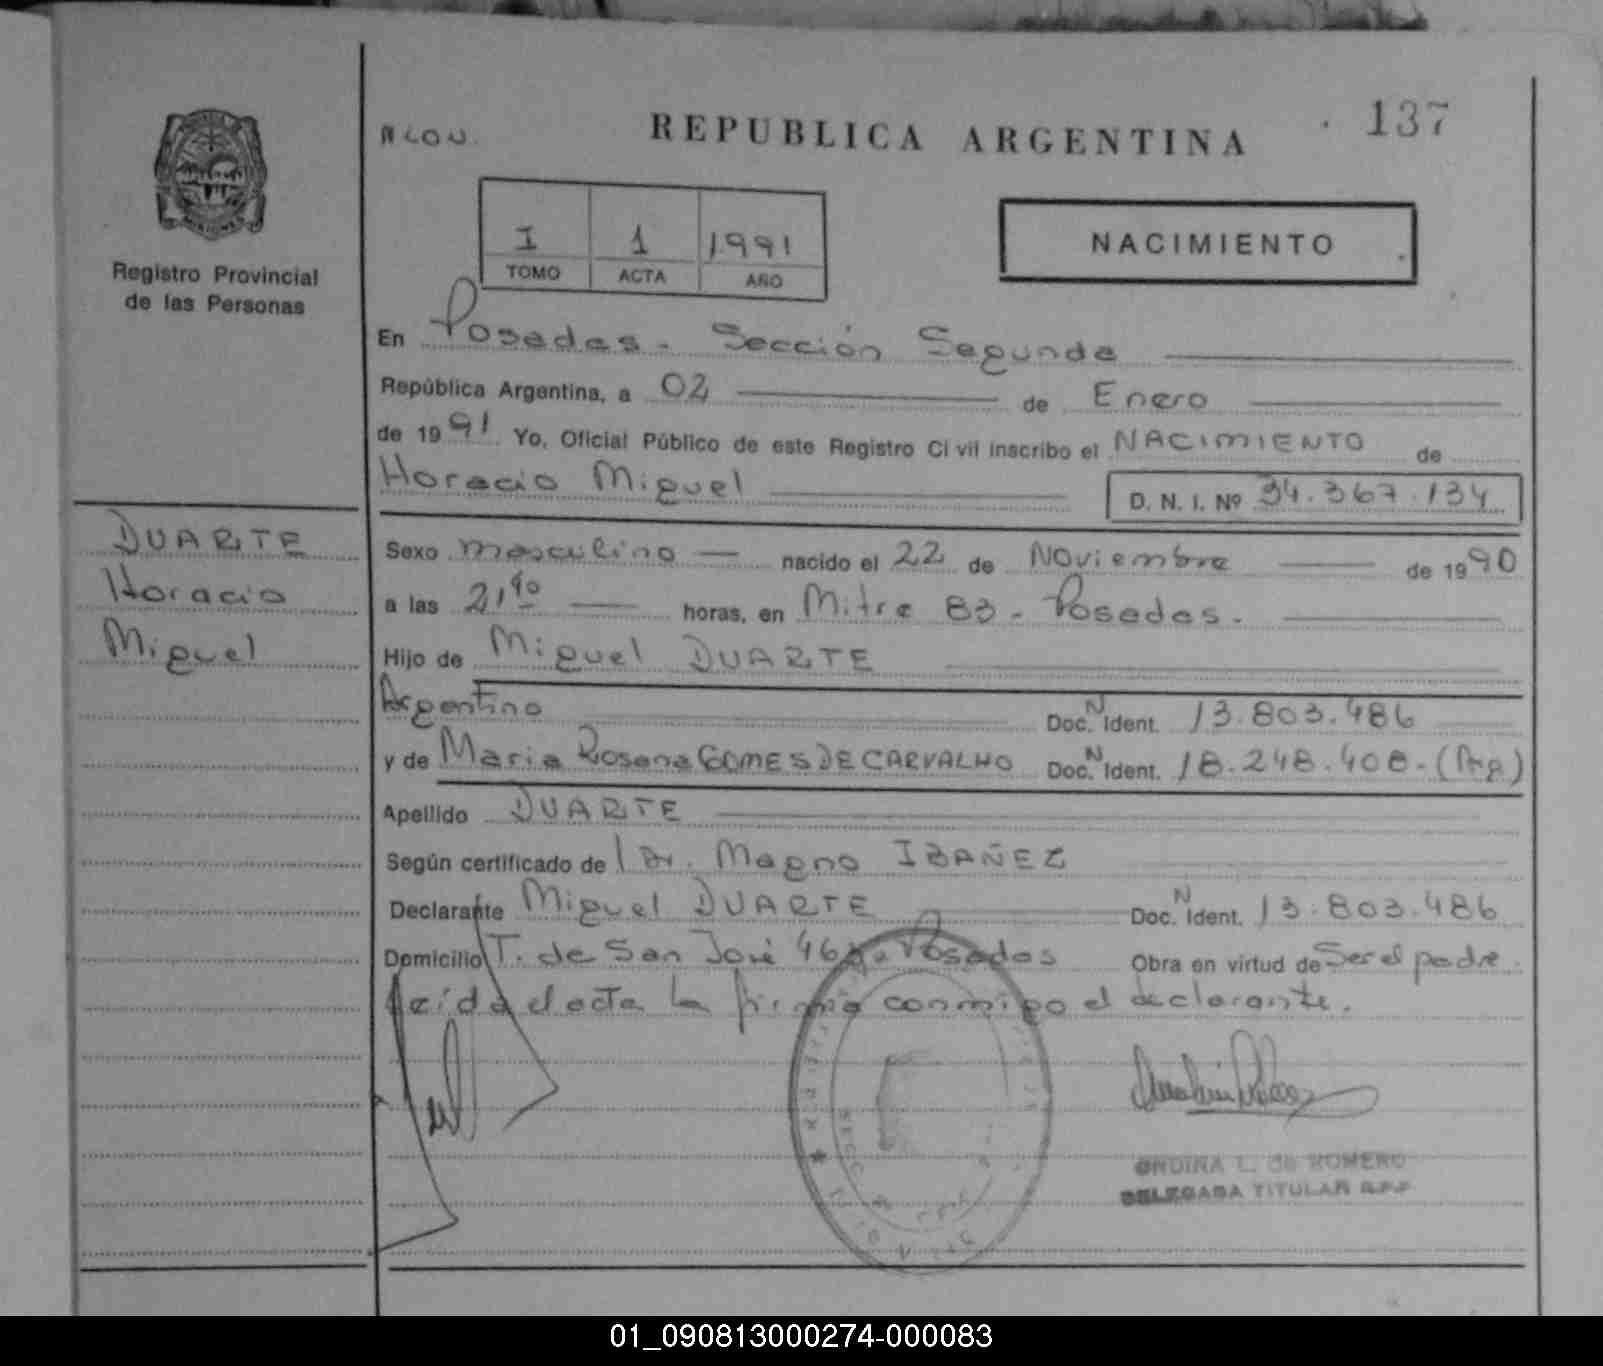 137
REPUBLICA ARGENTINA
Registro Provincial
de las Personas
I 1 1991
TOMO ACTA AÑO
NACIMIENTO
En Posadas - Sección Segunda
República Argentina, a 02 de Enero
de 1991 Yo, Oficial Público de este Registro Civil inscribo el NACIMIENTO de
Horacio Miguel D. N. I. Nº 34.367.134
DUARTE
Horacio
Miguel
Sexo masculino nacido el 22 de Noviembre de 1990
a las 21,40 horas, en Mitre 83 - Posadas.
Hijo de Miguel DUARTE
Argentino Doc. N Ident. 13.803.486
y de Maria Rosana GOMES DE CARVALHO Doc. N Ident. 18.248.408 - (Arg)
Apellido DUARTE
Según certificado de Dr. Magno IBAÑEZ
Declarante Miguel DUARTE Doc. N Ident. 13.803.486
Domicilio T. de San José Posadas Obra en virtud de Ser el padre.
Leída el acta la firma conmigo el declarante.
ONDINA L. de ROMERO
DELEGADA TITULAR R.P.P.
01_090813000274-000083